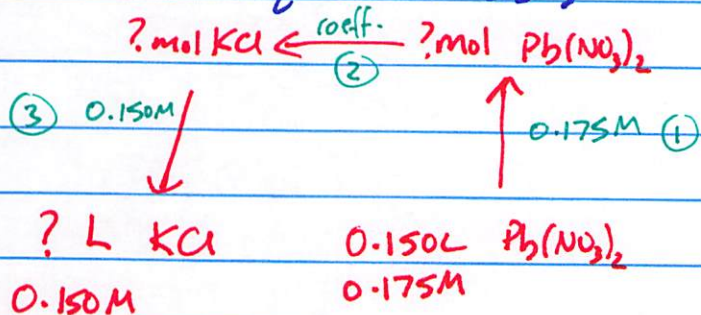 ?mol KCl ← coeff. ② ?mol Pb(NO₃)₂
③ 0.150M
0.175M ①
? L KCl 0.150L Pb(NO₃)₂
0.150M 0.175M